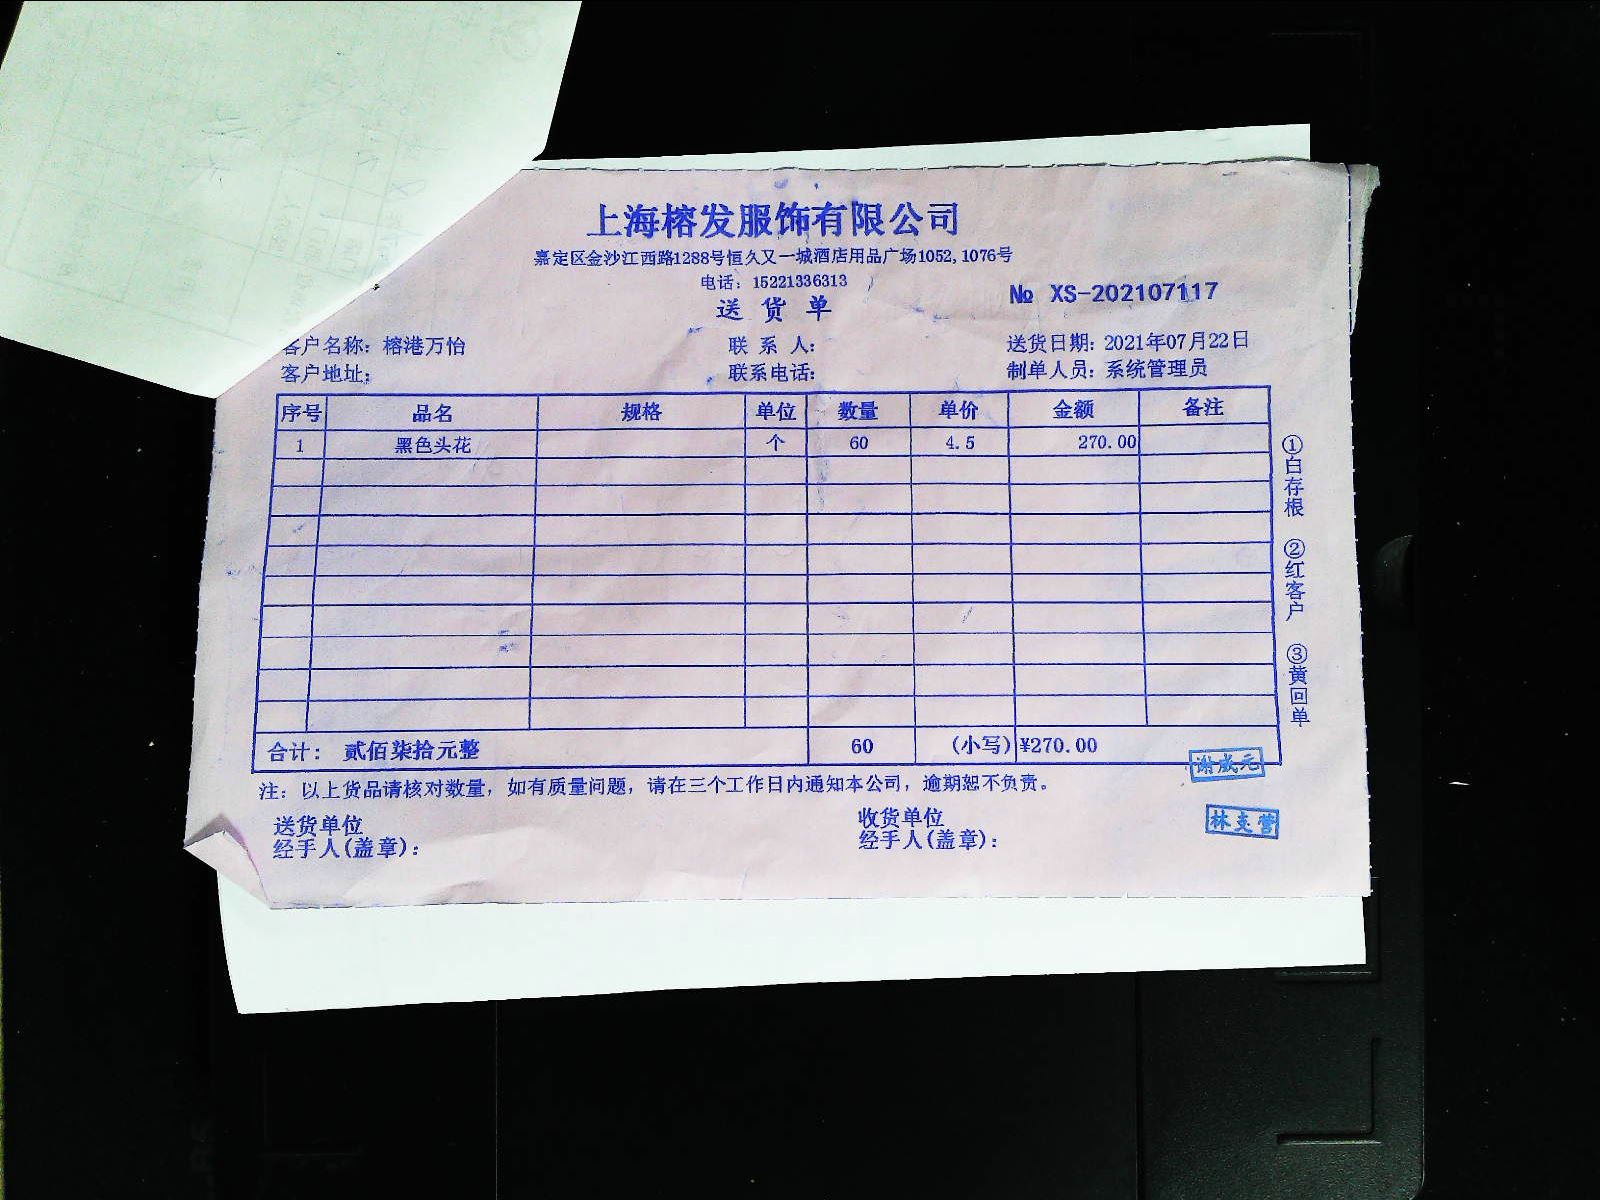 上海榕发服饰有限公司
嘉定区金沙江西路1288号恒久又一城酒店用品广场1052,1076号
电话：15221336313
送货单
№ XS-202107117
客户名称：榕港万怡 联系人： 送货日期：2021年07月22日
客户地址： 联系电话： 制单人员：系统管理员
序号 品名 规格 单位 数量 单价 金额 备注
1 黑色头花 个 60 4.5 270.00
合计： 贰佰柒拾元整 60 (小写) ¥270.00
注：以上货品请核对数量，如有质量问题，请在三个工作日内通知本公司，逾期恕不负责。
送货单位 收货单位
经手人(盖章)： 经手人(盖章)：
①白存根 ②红客户 ③黄回单